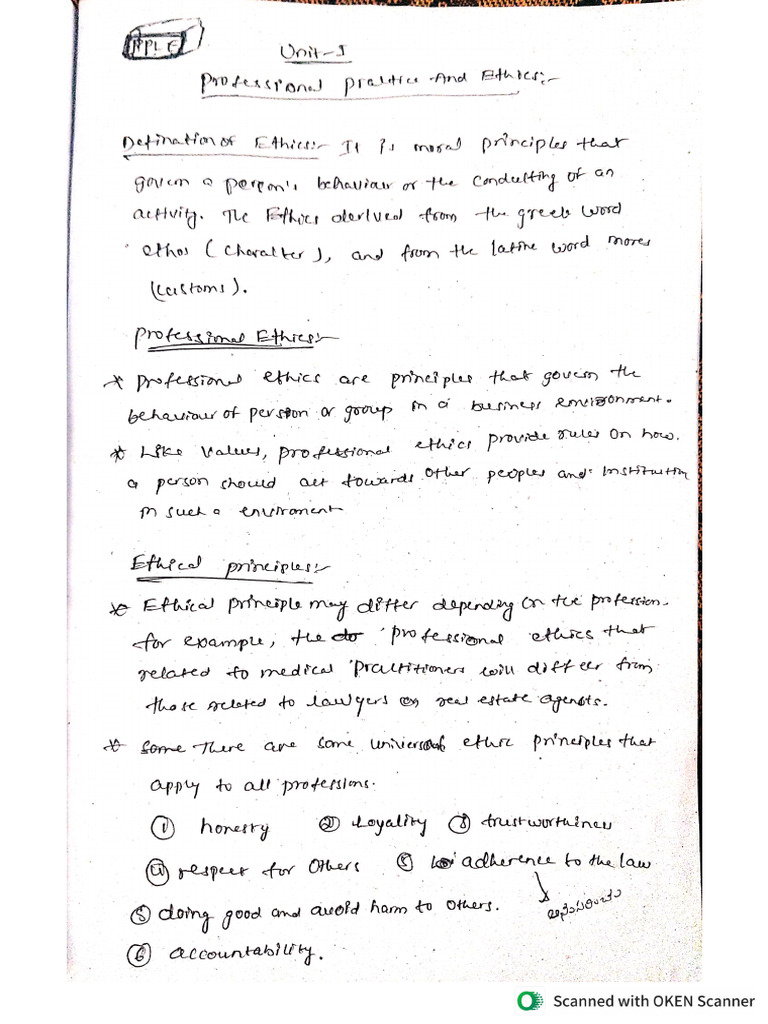 PPLE
Unit-I
Professional practice And Ethics:-
Defination of Ethics:- It is moral principles that
govern a person's behaviour or the conducting of an
activity. The Ethics derived from the greek word
ethos (character), and from the latine word mores
(customs).
Professional Ethics:-
* Professional ethics are principles that govern the
behaviour of person or group in a business environment.
* Like values, professional ethics provide rules on how
a person should act towards other peoples and institution
in such a enviroment
Ethical principles:-
* Ethical principle may differ depending on the profession.
for example, the do professional ethics that
related to medical practitioners will differ from
those related to lawyers or real estate agents.
* Some There are some universal ethic principles that
apply to all professions.
① honesty ② Loyality ③ trustworthiness
④ respect for others ⑤ adherence to the law
⑤ doing good and avoid harm to others.
⑥ accountability.
Scanned with OKEN Scanner